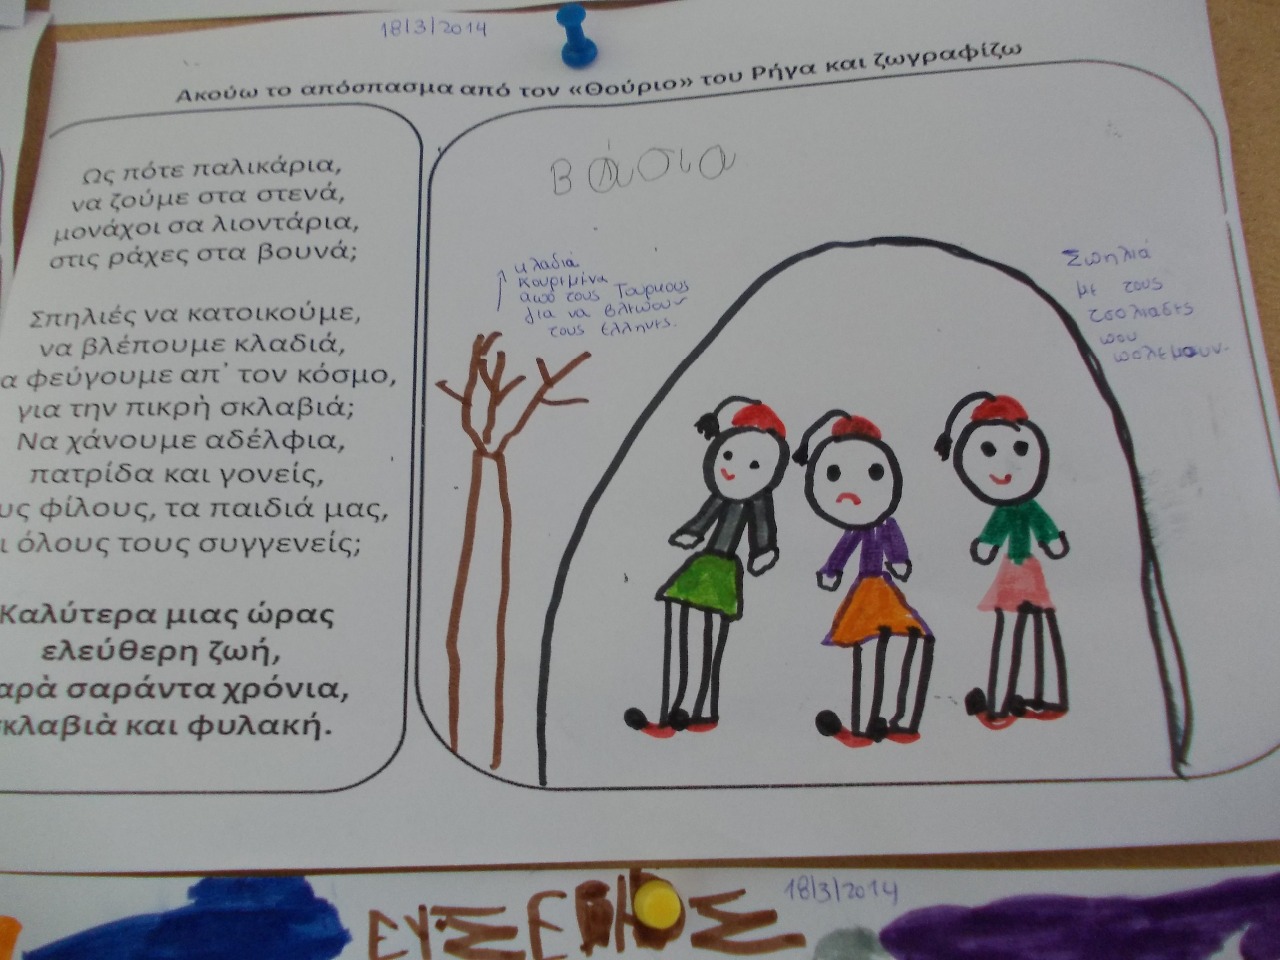 18/3/2014
Ακούω το απόσπασμα από τον «Θούριο» του Ρήγα και ζωγραφίζω
Ως πότε παλικάρια,
να ζούμε στα στενά,
μονάχοι σα λιοντάρια,
στις ράχες στα βουνά;
Σπηλιές να κατοικούμε,
να βλέπουμε κλαδιά,
α φεύγουμε απ' τον κόσμο,
για την πικρὴ σκλαβιά;
Να χάνουμε αδέλφια,
πατρίδα και γονείς,
υς φίλους, τα παιδιά μας,
ι όλους τους συγγενείς;
Καλύτερα μιας ώρας
ελεύθερη ζωή,
αρὰ σαράντα χρόνια,
κλαβιὰ και φυλακή.
Βάσια
κλαδιά
κουρεμένα
από τους Τούρκους
για να βλέπουν
τους έλληνες.
Σπηλιά
με τους
τσολιάδες
που
πολεμουν.
ΕΥΣΕΒΗΣ
18/3/2014